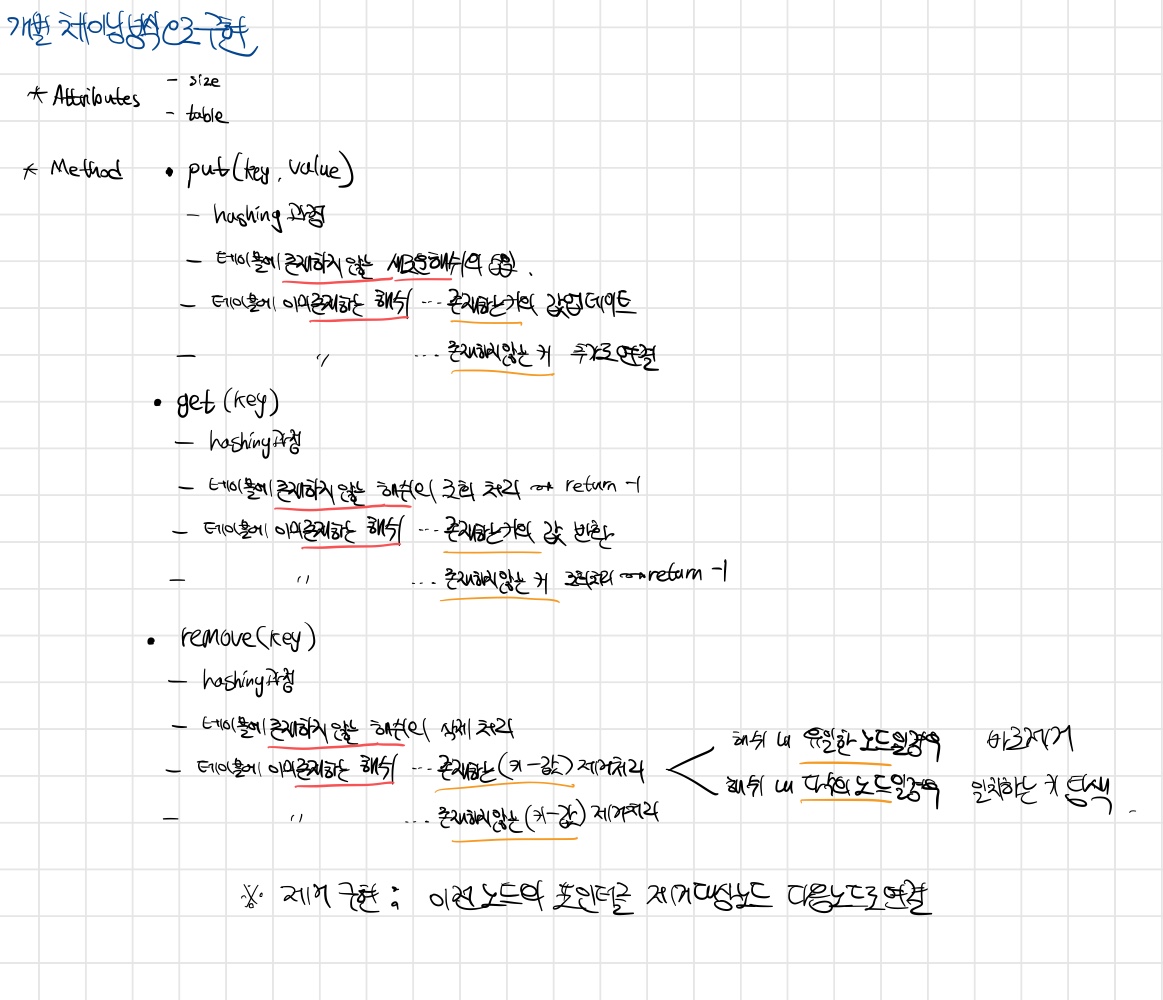 개별 체이닝방식으로 구현
* Attributes - size
- table
* Method • put(key, value)
- hashing 과정
- 테이블에 존재하지 않는 새로운 해쉬의
- 테이블에 이미 존재하는 해쉬 ··· 존재하는 키의 값 업데이트
- 〃 ··· 존재하지않는 키 추가로 연결
• get (key)
- hashing 과정
- 테이블에 존재하지 않는 해쉬의 조회 처리 → return -1
- 테이블에 이미 존재하는 해쉬 ··· 존재하는 키의 값 반환
- 〃 ··· 존재하지않는 키 조회처리 → return -1
• remove(key)
- hashing 과정
- 테이블에 존재하지 않는 해쉬의 삭제 처리
해쉬 내 유일한 노드일경우 바로제거
- 테이블에 이미 존재하는 해쉬 ··· 존재하는 (키-값) 제거처리
해쉬 내 다수의 노드일경우 일치하는 키 탐색
- 〃 ··· 존재하지않는 (키-값) 제거처리
※ 제거 구현 : 이전 노드의 포인터를 제거대상노드 다음노드로 연결